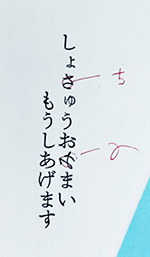 しょさゅうおぐまい
もうしあげます
ち
み